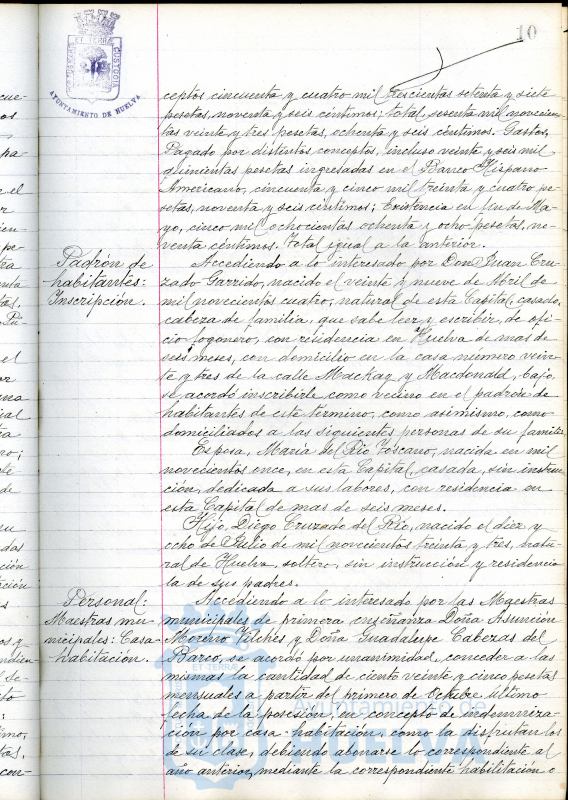 10
PORTUS MARIS ET TERRÆ CUSTODIA
AYUNTAMIENTO DE HUELVA
ceptos cincuenta y cuatro mil trescientas setenta y siete
pesetas, noventa y seis céntimos; total, sesenta mil novecien-
tas veinte y tres pesetas, ochenta y seis céntimos. Gastos,
Pagado por distintos conceptos, incluso veinte y seis mil
quinientas pesetas ingresadas en el Banco Hispano
Americano, cincuenta y cinco mil treinta y cuatro pe-
setas, noventa y seis céntimos; Existencia en fin de Ma-
yo, cinco mil ochocientas ochenta y ocho pesetas, no-
venta céntimos. Total igual a la anterior.
Padrón de
habitantes:
Inscripción.
Accediendo a lo interesado por Don Juan Cru-
zado Garrido, nacido el veinte y nueve de Abril de
mil novecientos cuatro, natural de esta Capital, casado,
cabeza de familia, que sabe leer y escribir, de ofi-
cio fogonero, con residencia en Huelva de mas de
seis meses, con domicilio en la casa numero vein-
te y tres de la calle Mackay y Macdonald, bajo,
se acordó inscribirle como vecino en el padrón de
habitantes de este término, como asimismo, como
domiciliados a las siguientes personas de su familia
Esposa, Maria del Rio Toscano, nacida en mil
novecientos once, en esta Capital, casada, sin instruc-
ción, dedicada a sus labores, con residencia en
esta Capital de mas de seis meses.
Hijo, Diego Cruzado del Rio, nacido el diez y
ocho de Julio de mil novecientos treinta y tres, natu-
ral de Huelva, soltero, sin instrucción y residencia
la de sus padres.
Personal:
Maestras mu-
nicipales: Casa
habitación.
Accediendo a lo interesado por las Maestras
municipales de primera enseñanza Doña Asunción
Moreno Vilches y Doña Guadalupe Cabezas del
Barco, se acordó por unanimidad, conceder a las
mismas la cantidad de ciento veinte y cinco pesetas
mensuales a partir del primero de Octubre último
fecha de la posesión, en concepto de indemniza-
ción por casa-habitación, como la disfrutan los
de su clase, debiendo abonarse lo correspondiente al
año anterior, mediante la correspondiente habilitación o
ET TERRÆ
Ayuntamiento de
HUELVA